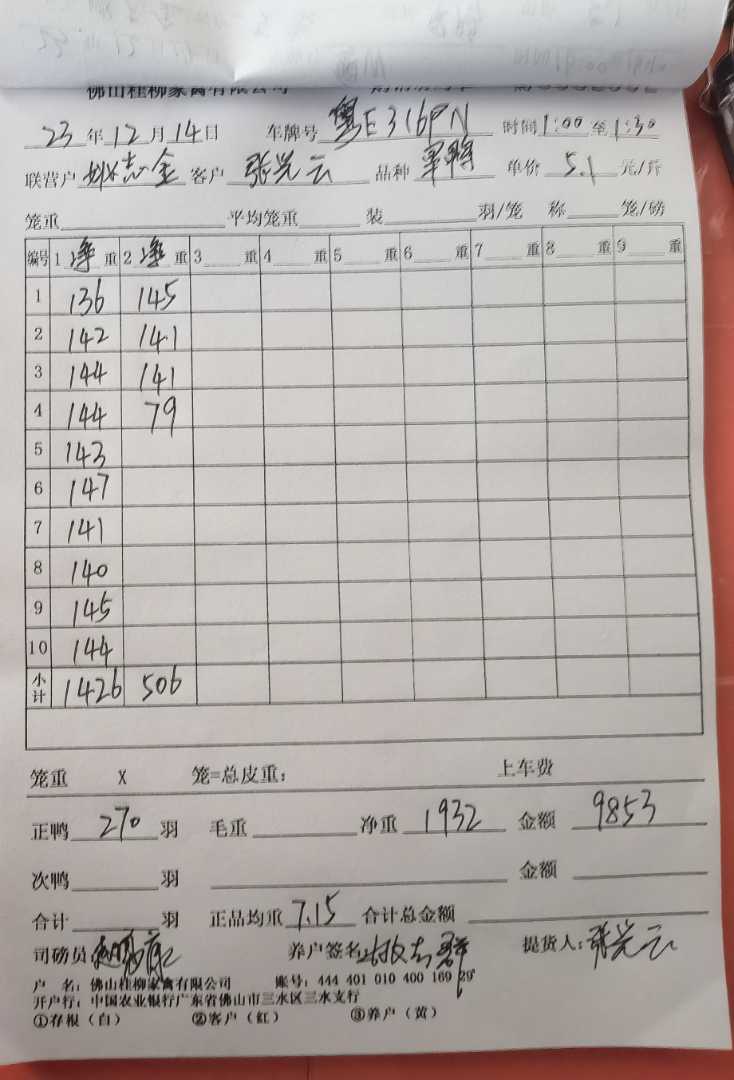 佛山桂柳家禽有限公司
23 年 12 月 14 日 车牌号 粤E316PN 时间 1:00 至 1:30
联营户 林志金 客户 张光云 品种 单价 5.1 元/斤
笼重 平均笼重 装 羽/笼 称 笼/磅
编号 1 净 重 2 净 重 3 重 4 重 5 重 6 重 7 重 8 重 9 重
1 136 145
2 142 141
3 144 141
4 144 79
5 143
6 147
7 141
8 140
9 145
10 144
小计 1426 506
笼重 X 笼=总皮重: 上车费
正鸭 270 羽 毛重 净重 1932 金额 9853
次鸭 羽 金额
合计 羽 正品均重 7.15 合计总金额
司磅员 养户签名 提货人: 张光云
户 名: 佛山桂柳家禽有限公司 账号: 444 401 010 400 169 29
开户行: 中国农业银行广东省佛山市三水区三水支行
①存根(白) ②客户(红) ③养户(黄)